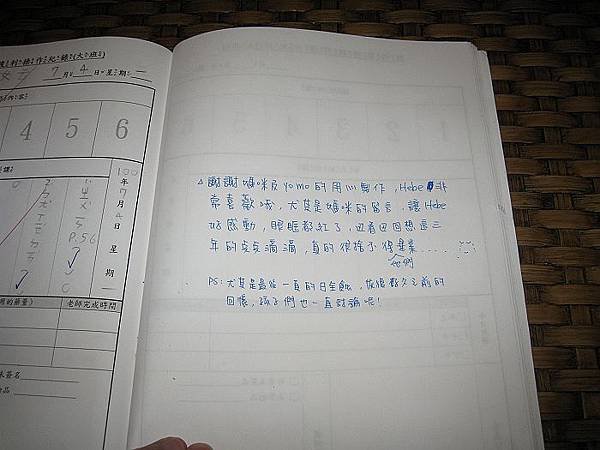 作紀錄(大班)
7月4日星期一
4 5 6
100年7月4日星期一
P.56
老師完成時間
謝謝媽咪及yomo的用心製作,Hebe非
常喜歡哦,尤其是媽咪的留言,讓Hebe
好感動,眼眶都紅了,回看回回想這三
年的點點滴滴,真的很捨不得畢業......
他們
PS:尤其是最後一頁的日全蝕,恢復都久之前的
回憶,孩子們也一直討論呢!